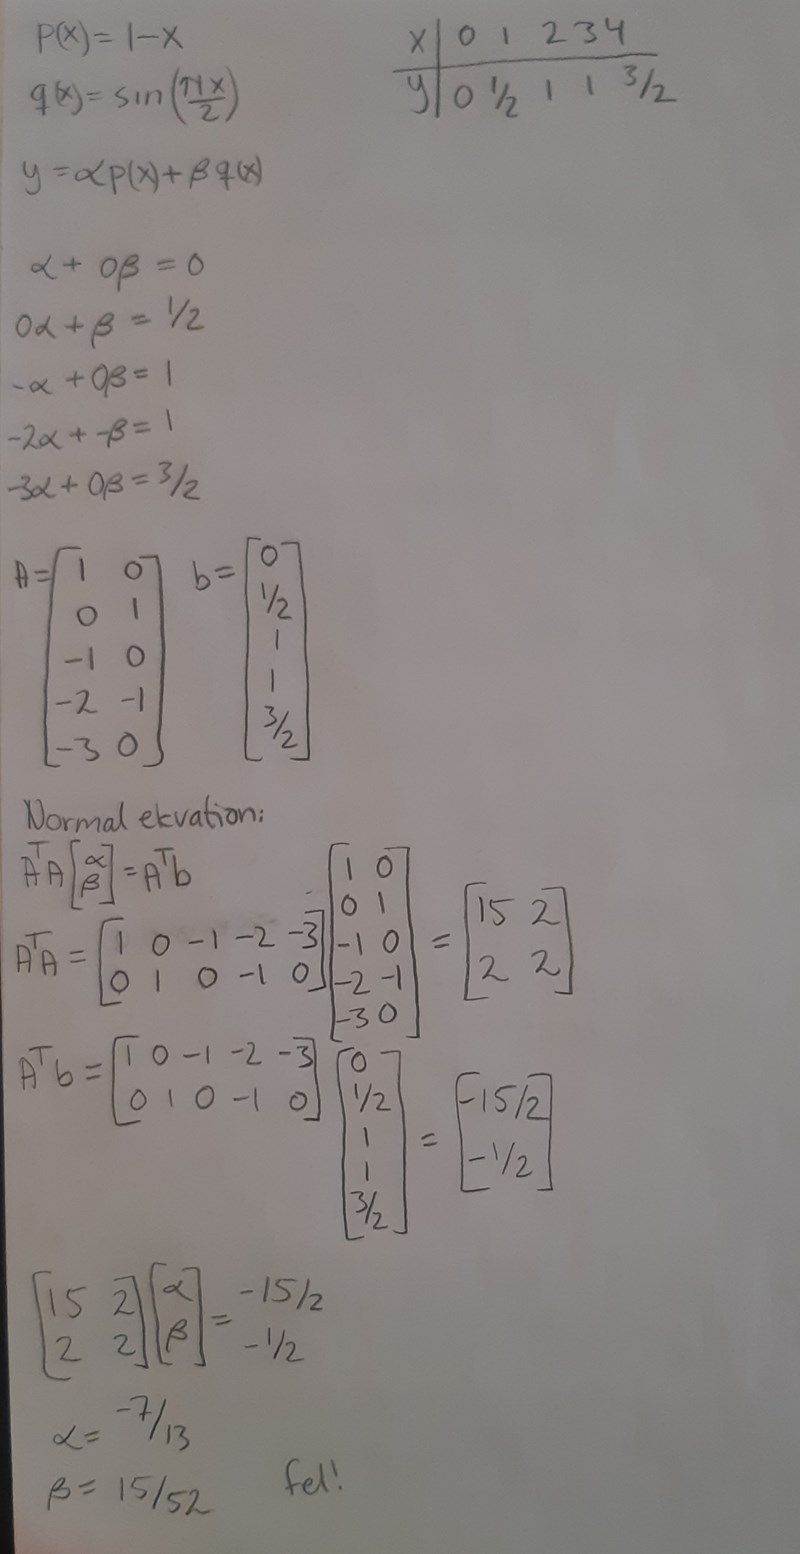 p(x) = 1-x
q(x) = sin(πx/2)
x | 0 1 2 3 4
y | 0 1/2 1 1 3/2
y = αp(x) + βq(x)
α + 0β = 0
0α + β = 1/2
-α + 0β = 1
-2α + -β = 1
-3α + 0β = 3/2
A = [1 0
0 1
-1 0
-2 -1
-3 0]
b = [0
1/2
1
1
3/2]
Normal ekvation:
AᵀA [α
β] = Aᵀb
AᵀA = [1 0 -1 -2 -3
0 1 0 -1 0]
[1 0
0 1
-1 0
-2 -1
-3 0]
= [15 2
2 2]
Aᵀb = [1 0 -1 -2 -3
0 1 0 -1 0]
[0
1/2
1
1
3/2]
= [-15/2
-1/2]
[15 2
2 2]
[α
β]
= -15/2
-1/2
α = -7/13
β = 15/52
fel!